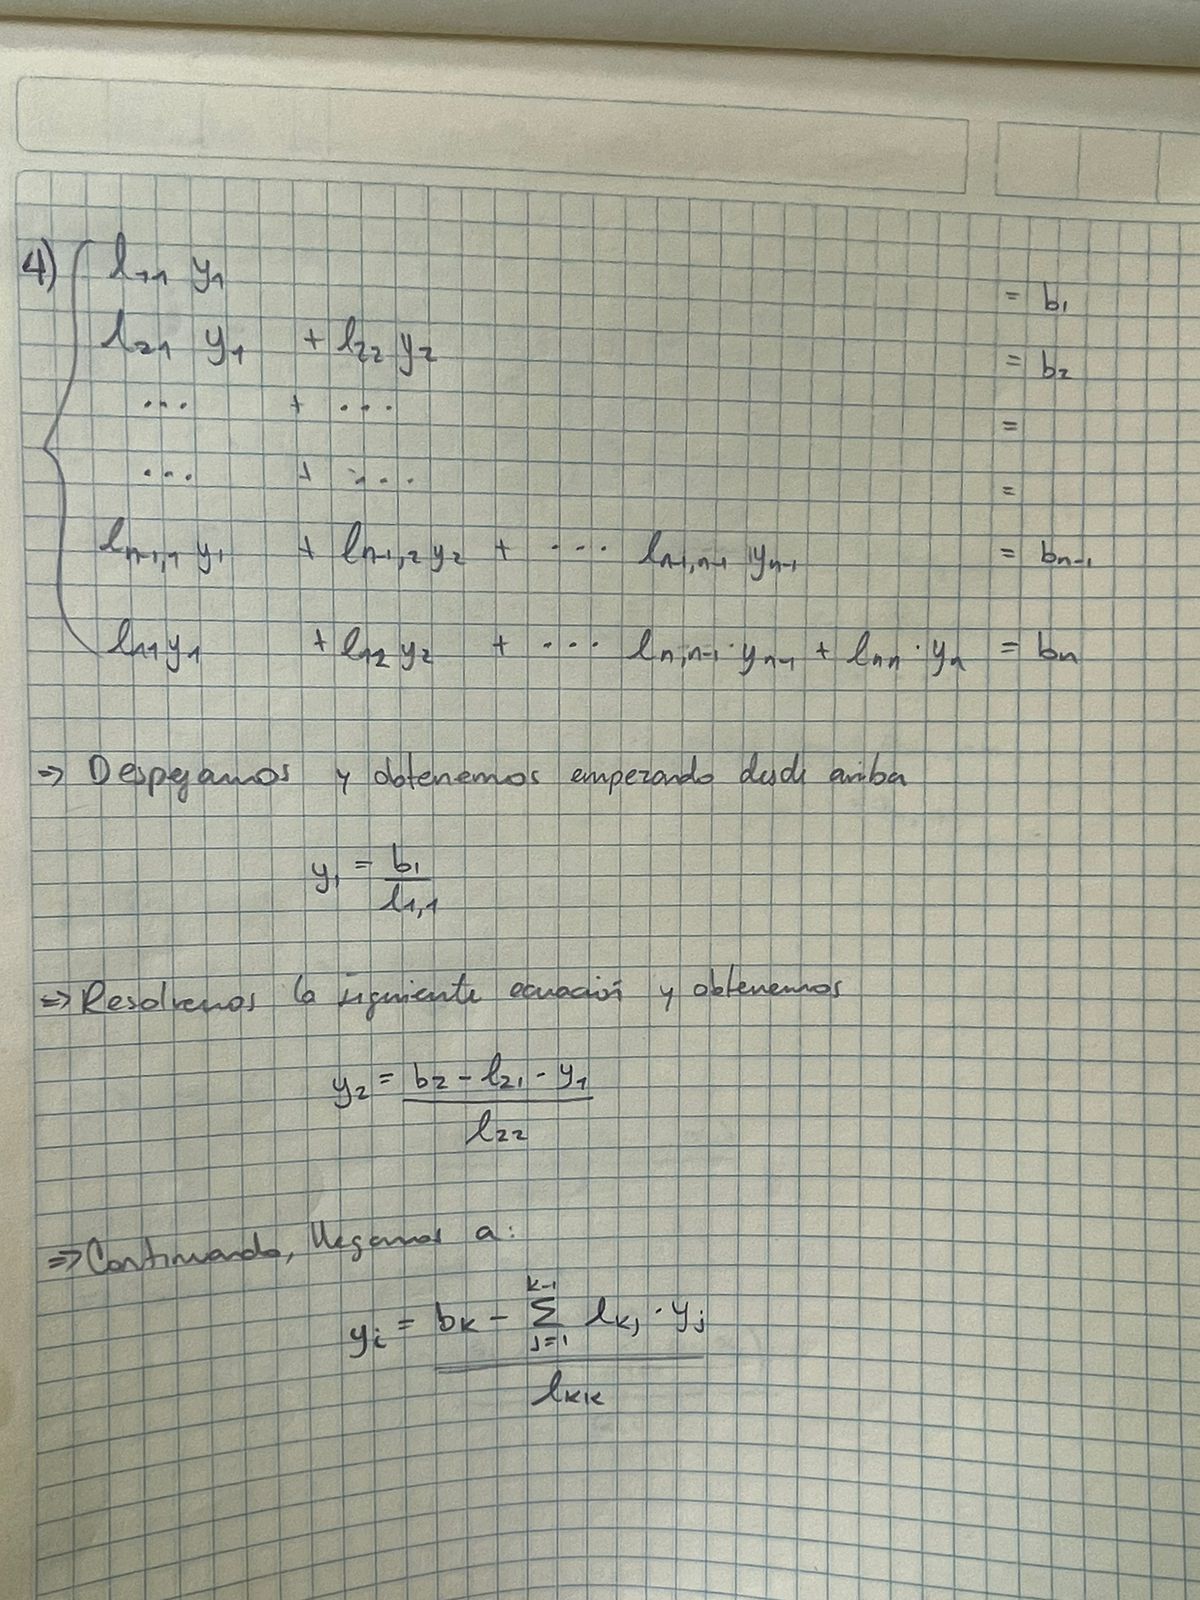 4) l₁₁ y₁ = b₁
l₂₁ y₁ + l₂₂ y₂ = b₂
... + ... =
... + ... =
lₙ₋₁,₁ y₁ + lₙ₋₁,₂ y₂ + ... lₙ₋₁,ₙ₋₁ yₙ₋₁ = bₙ₋₁
l₁₁ y₁ + l₁₂ y₂ + ... lₙ,ₙ₋₁ · yₙ₋₁ + lₙₙ · yₙ = bₙ
⇒ Despejamos y obtenemos empezando desde arriba
y₁ = b₁ / l₁,₁
⇒ Resolvemos la siguiente ecuación y obtenemos
y₂ = (b₂ - l₂₁ · y₁) / l₂₂
⇒ Continuando, llegamos a:
yᵢ = (bₖ - Σ_{j=1}^{k-1} lₖⱼ · yⱼ) / lₖₖ